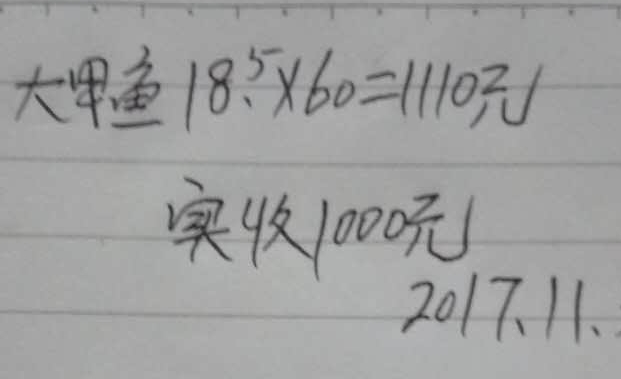 大甲鱼 18.5×60=1110元
实收1000元
2017.11.